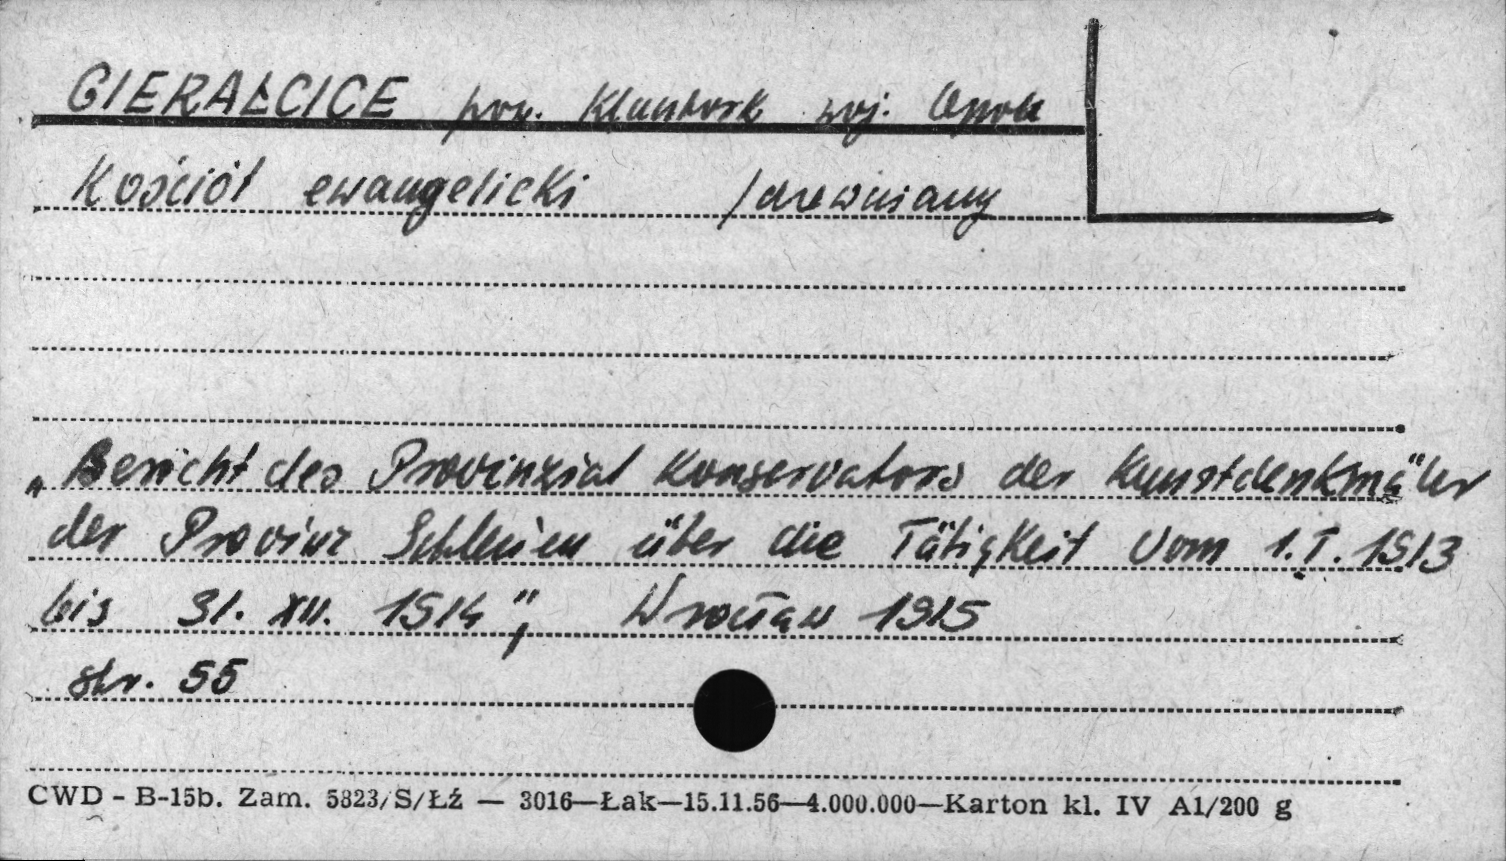 GIERAŁCICE pow. Kluczbork woj. Opole
Kościół ewangelicki /drewniany
„Bericht des Provinzial Konservators der Kunstdenkmäler
der Provinz Schlesien über die Tätigkeit vom 1.I.1913
bis 31. XII. 1914", Wrocław 1915
str. 55
CWD - B-15b. Zam. 5823/S/Łź — 3016—Łak—15.11.56—4.000.000—Karton kl. IV A1/200 g